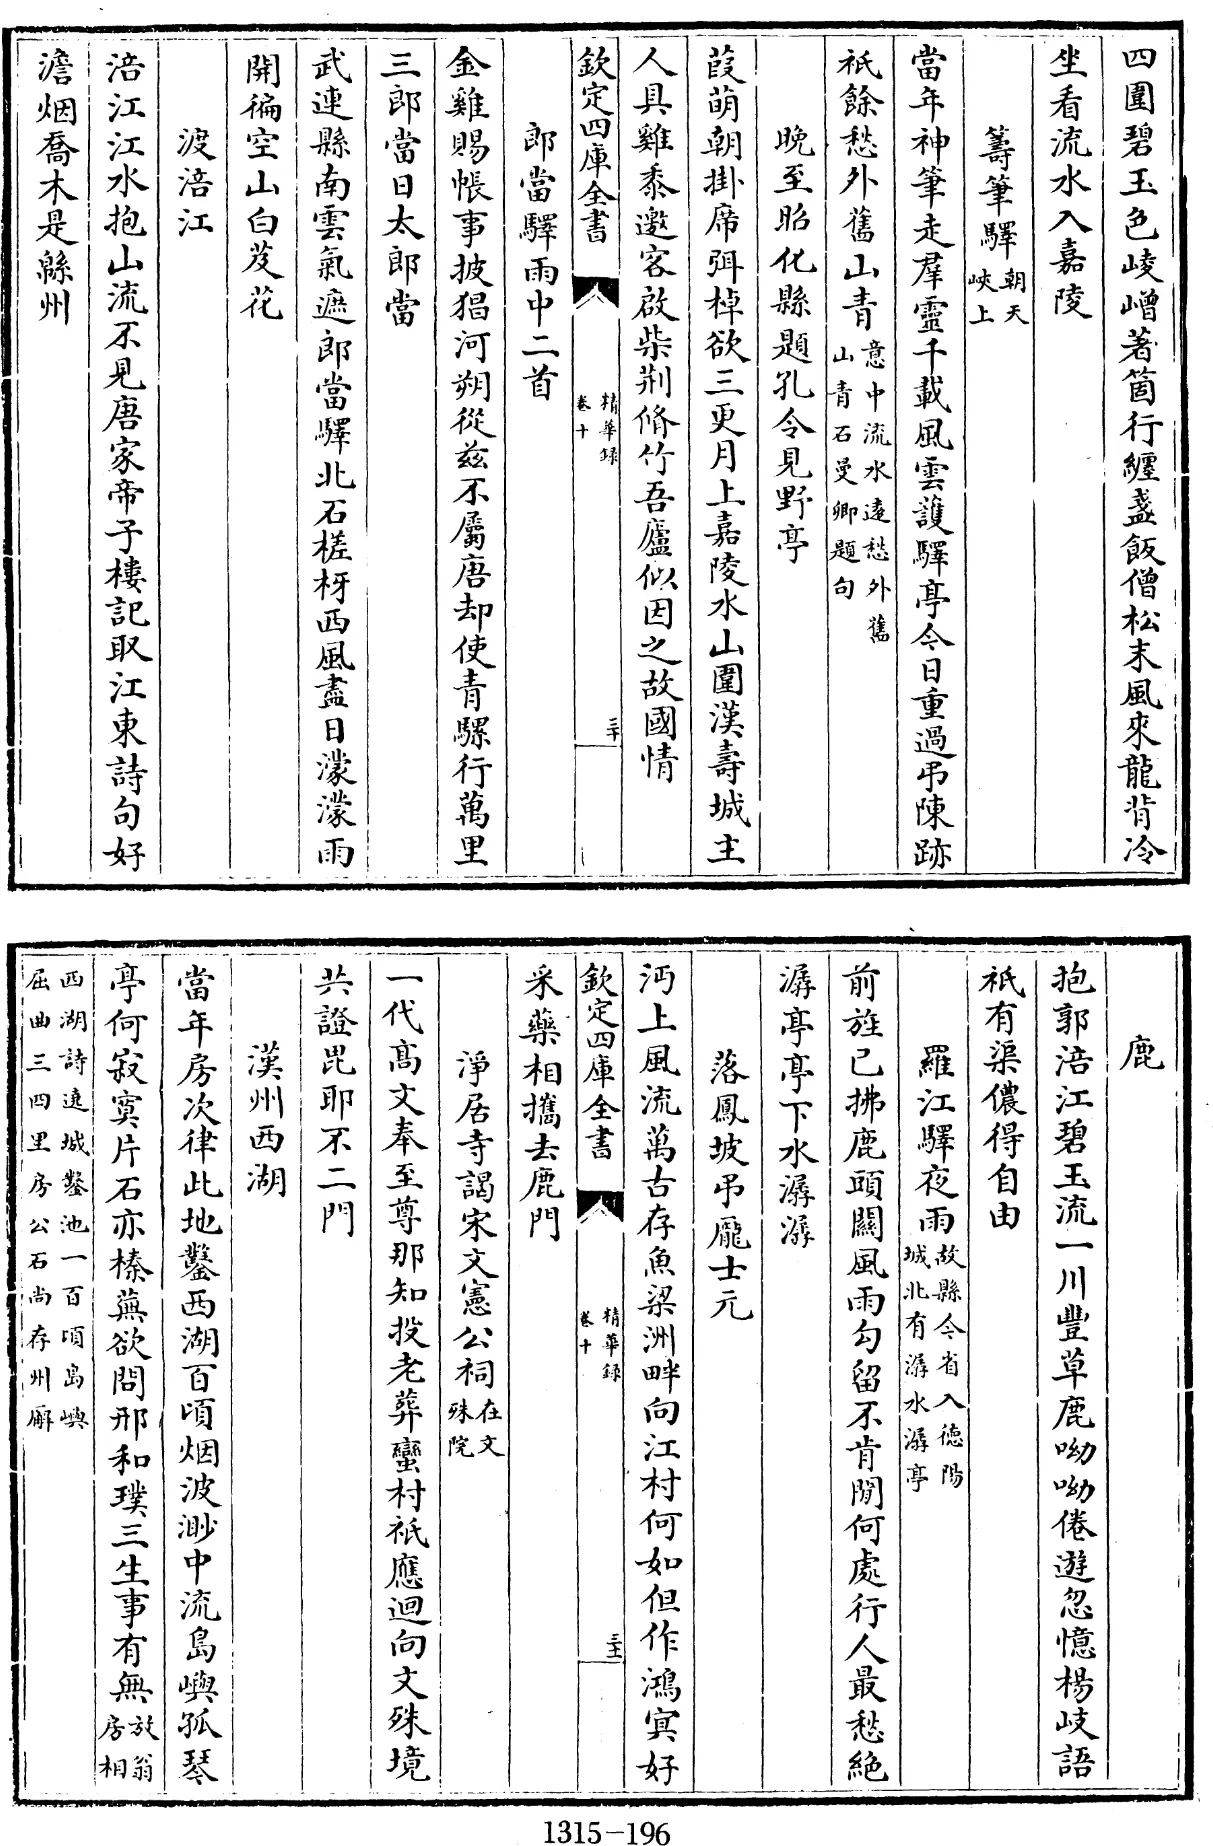 四圍碧玉色崚嶒著箇行纏盞飯僧松末風來龍背冷
坐看流水入嘉陵
籌筆驛朝天
峽上
當年神筆走羣靈千載風雲護驛亭今日重過弔陳跡
袛餘愁外舊山青意中流水遠愁外舊
山青石曼卿題句
晚至昭化縣題孔令見野亭
葭萌朝掛席弭棹欲三更月上嘉陵水山圍漢壽城主
人具雞黍邀客啟柴荆脩竹吾廬似因之故國情
欽定四庫全書
精華録
卷十
三十
郎當驛雨中二首
金雞賜帳事披猖河朔從兹不屬唐却使青騾行萬里
三郎當日太郎當
武連縣南雲氣遮郎當驛北石槎枒西風盡日濛濛雨
開徧空山白芨花
渡涪江
涪江江水抱山流不見唐家帝子樓記取江東詩句好
澹烟喬木是緜州
鹿
抱郭涪江碧玉流一川豐草鹿呦呦倦遊忽憶楊岐語
袛有渠儂得自由
羅江驛夜雨故縣今省入德陽
城北有潺水潺亭
前旌已拂鹿頭關風雨勾留不肯閒何處行人最愁絶
潺亭亭下水潺潺
落鳳坡弔龐士元
沔上風流萬古存魚梁洲畔向江村何如但作鴻冥好
欽定四庫全書
精華録
卷十
三十一
采藥相攜去鹿門
淨居寺謁宋文憲公祠在文
殊院
一代高文奉至尊那知投老葬蠻村袛應迴向文殊境
共證毘耶不二門
漢州西湖
當年房次律此地鑿西湖百頃烟波渺中流島嶼孤琴
亭何寂寞片石亦榛蕪欲問邢和璞三生事有無放翁
房相
西湖詩遶城鑿池一百頃島嶼
屈曲三四里房公石尚存州廨
1315-196